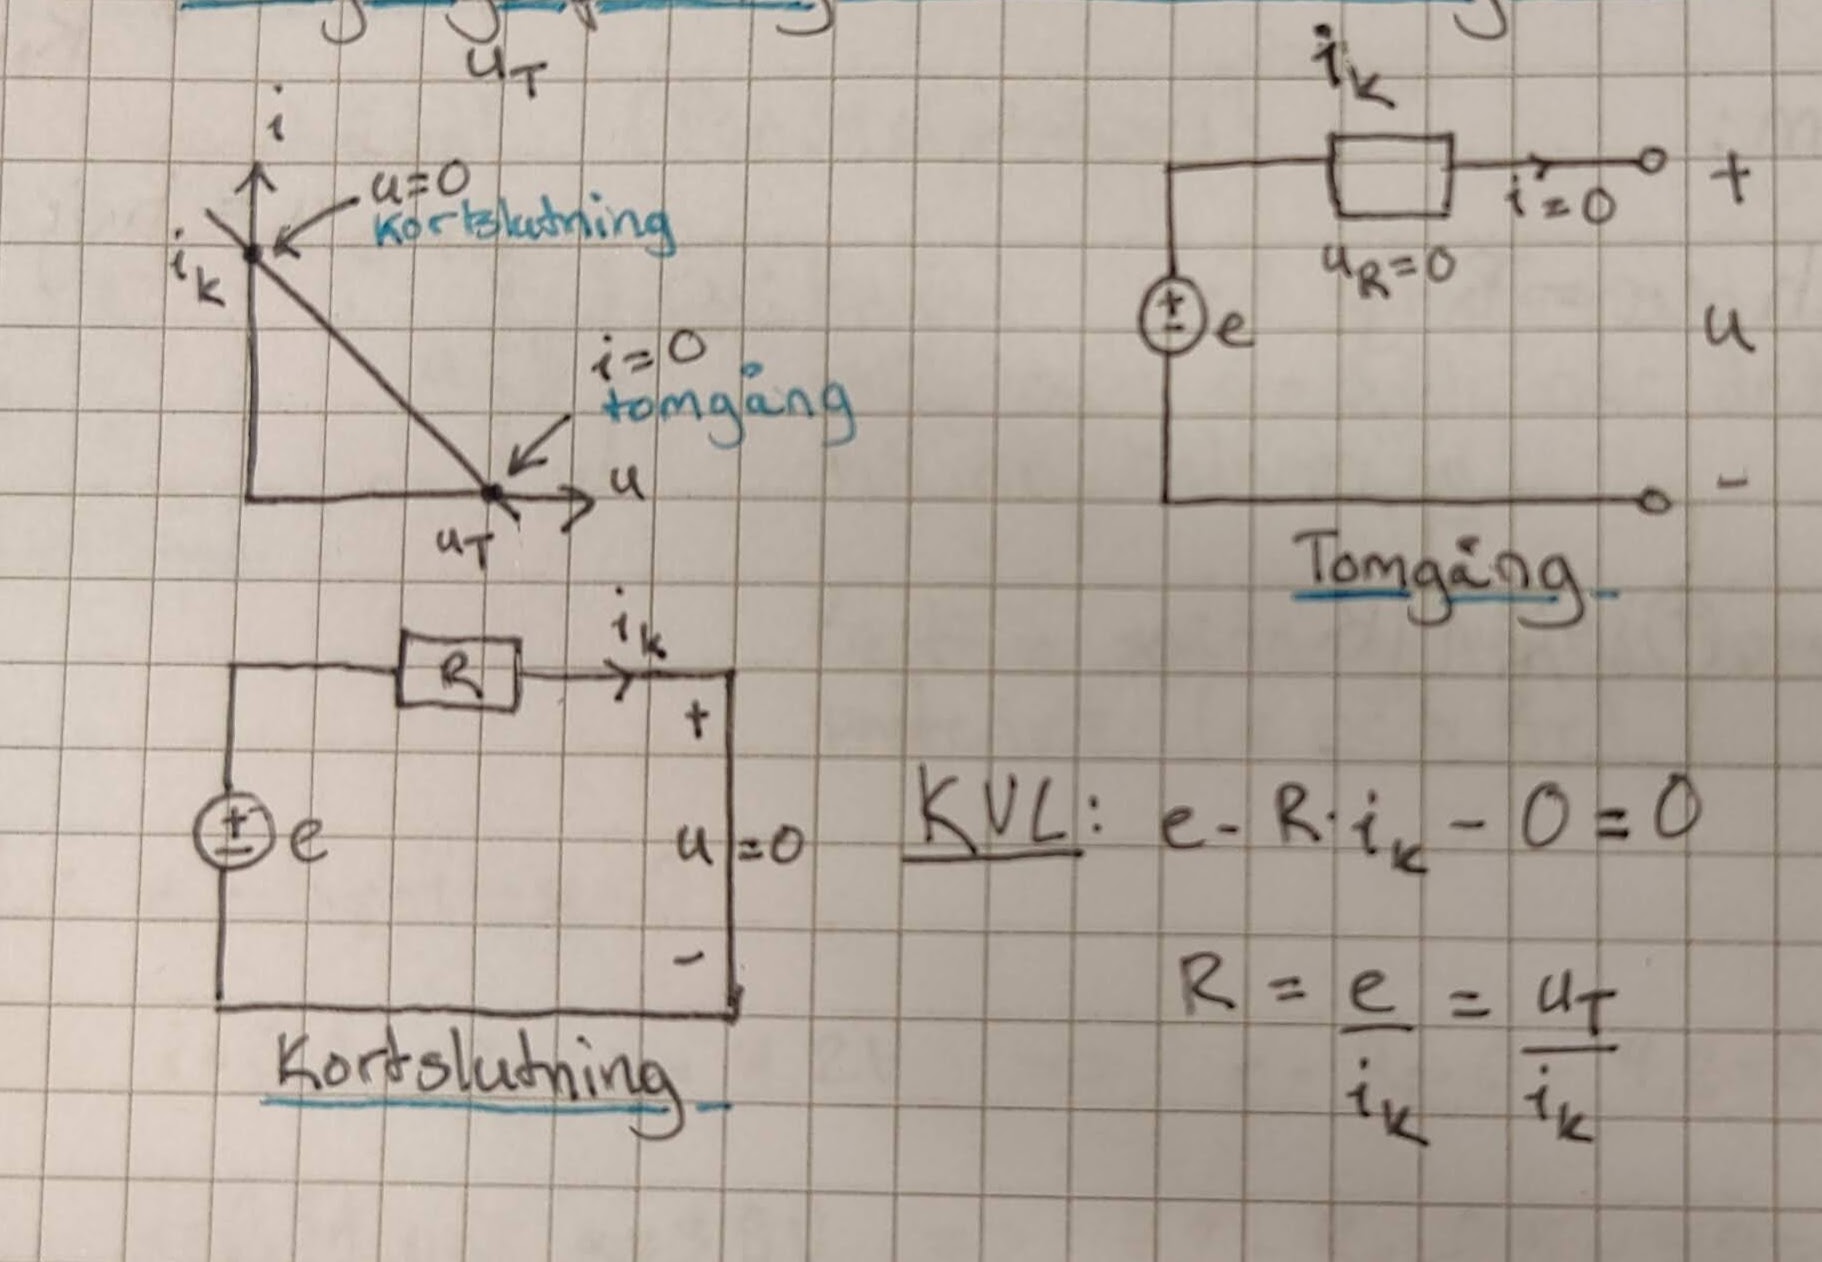 u_T
i_K
i
u=0
kortslutning
i_K
i=0
tomgång
u
u_T
+
i=0
u_R=0
e
u
-
Tomgång
R
i_K
+
e
u=0
-
Kortslutning
KVL: e - R·i_K - 0 = 0
R = e/i_K = u_T/i_K